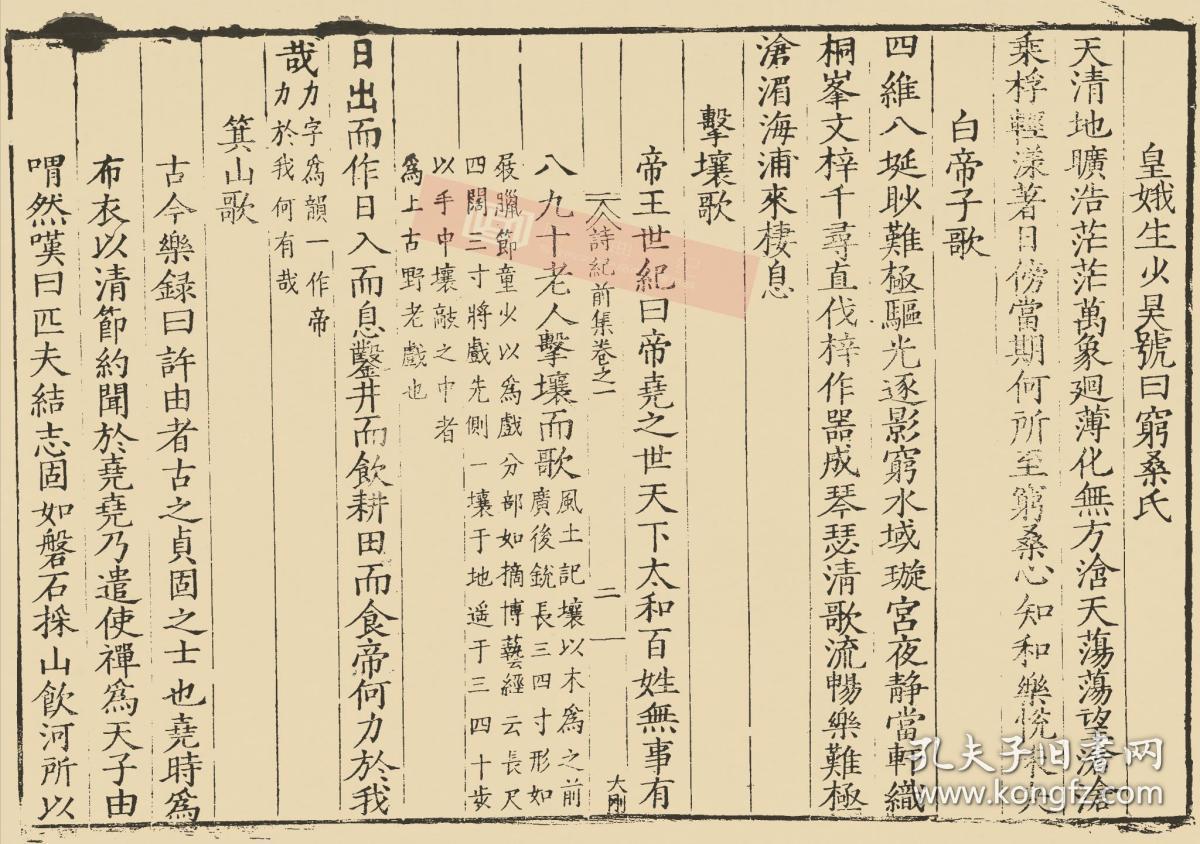 皇娥生少昊號曰窮桑氏
天清地曠浩茫茫萬象廻薄化無方浛天蕩蕩望滄滄
乘桴輕漾著日傍當期何所至窮桑心知和樂悅未央
白帝子歌
四維八埏眇難極驅光逐影窮水域璇宮夜静當軒織
桐峯文梓千尋直伐梓作器成琴瑟清歌流暢樂難極
滄湄海浦來棲息
擊壤歌
帝王世紀曰帝堯之世天下太和百姓無事有
詩紀前集卷之一 二 大剛
八九十老人擊壤而歌風土記壤以木爲之前
廣後銳長三四寸形如
屐臘節童少以爲戲分部如摘博藝經云長尺
四闊三寸將戲先側一壤于地遥于三四十步
以手中壤敲之中者
爲上古野老戲也
日出而作日入而息鑿井而飲耕田而食帝何力於我
哉力字爲韻一作帝
力於我何有哉
箕山歌
古今樂録曰許由者古之貞固之士也堯時爲
布衣以清節約聞於堯堯乃遣使禪爲天子由
喟然嘆曰匹夫結志固如磐石採山飲河所以
孔夫子旧書网
www.kongfz.com